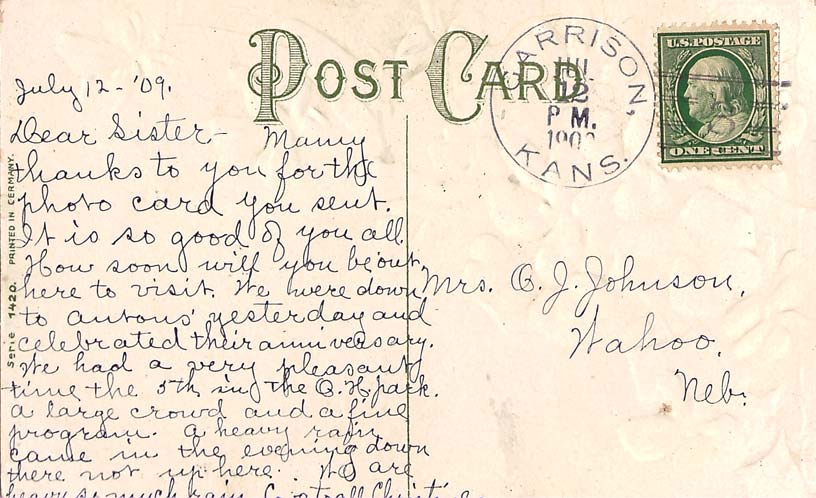 POST CARD
GARRISON, KANS.
JUL
12
P M.
190
U.S. POSTAGE
ONE CENT
Serie 1420. PRINTED IN GERMANY.
July 12 - '09.
Dear Sister - Many
thanks to you for the
photo card you sent.
It is so good of you all.
How soon will you be out
here to visit. We were down
to Antons' yesterday and
celebrated their anniversary.
We had a very pleasant
time the 5th in the O.H. park.
a large crowd and a fine
program. A heavy rain
came in the evening down
there not up here. We are
so much rain
Mrs. O. J. Johnson,
Wahoo,
Neb.